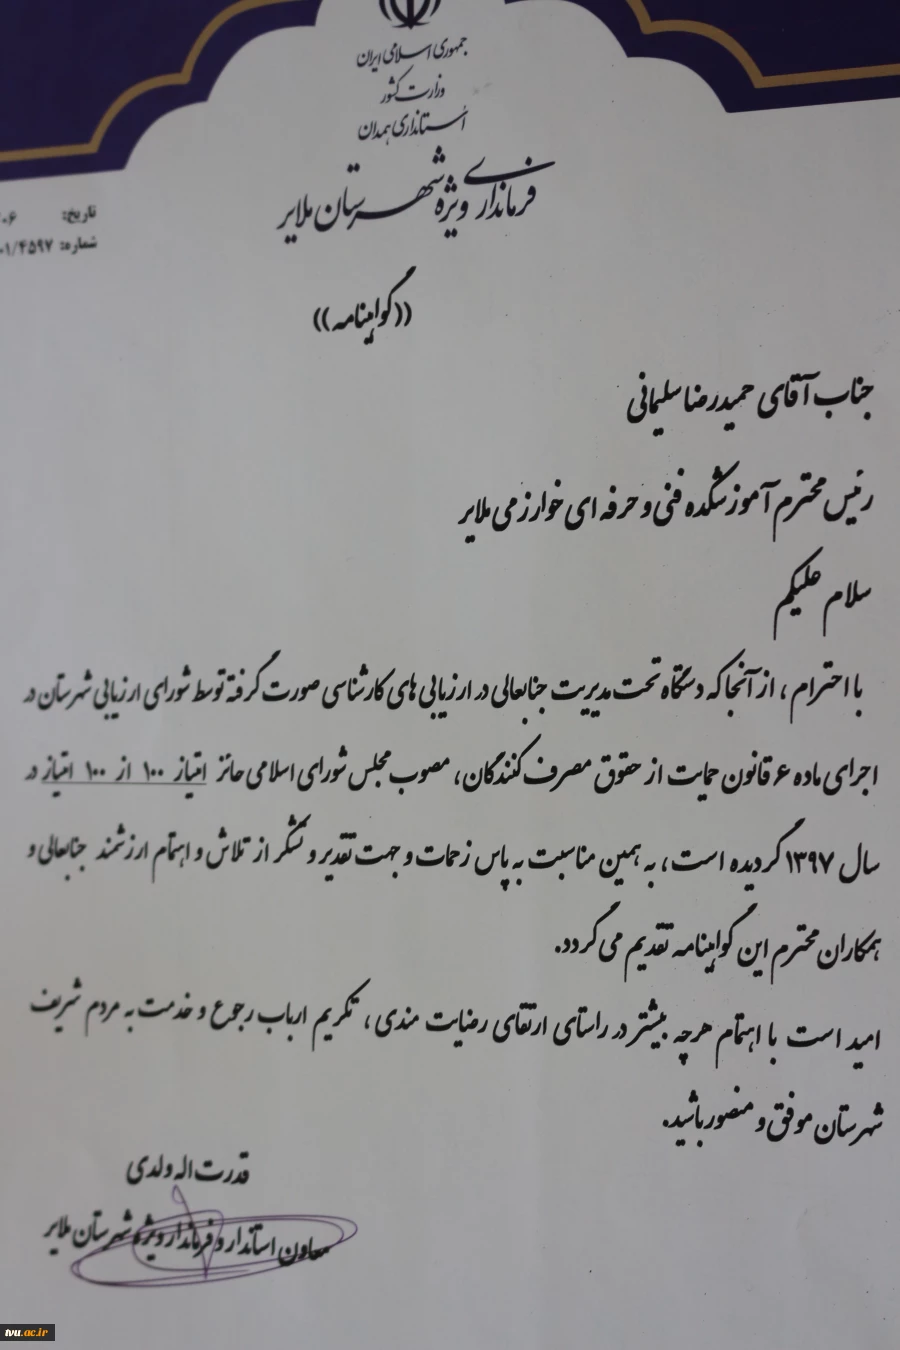 جمهوری اسلامی ایران
وزارت کشور
استانداری همدان
فرمانداری ویژه شهرستان ملایر
تاریخ:
شماره: ۰۱/۴۵۹۷
((گواهینامه))
جناب آقای حمیدرضا سلیمانی
رئیس محترم آموزشکده فنی و حرفه ای خوارزمی ملایر
سلام علیکم
با احترام ، از آنجا که دستگاه تحت مدیریت جنابعالی در ارزیابی های کارشناسی صورت گرفته توسط شورای ارزیابی شهرستان در
اجرای ماده ۶ قانون حمایت از حقوق مصرف کنندگان، مصوب مجلس شورای اسلامی حائز امتیاز ۱۰۰ از ۱۰۰ امتیاز در
سال ۱۳۹۷ گردیده است، به همین مناسبت به پاس زحمات و جهت تقدیر و تشکر از تلاش و اهتمام ارزشمند جنابعالی و
همکاران محترم این گواهینامه تقدیم می گردد.
امید است با اهتمام هرچه بیشتر در راستای ارتقای رضایت مندی ، تکریم ارباب رجوع و خدمت به مردم شریف
شهرستان موفق و منصور باشید.
قدرت اله ولدی
معاون استاندار و فرماندار ویژه شهرستان ملایر
tvu.ac.ir